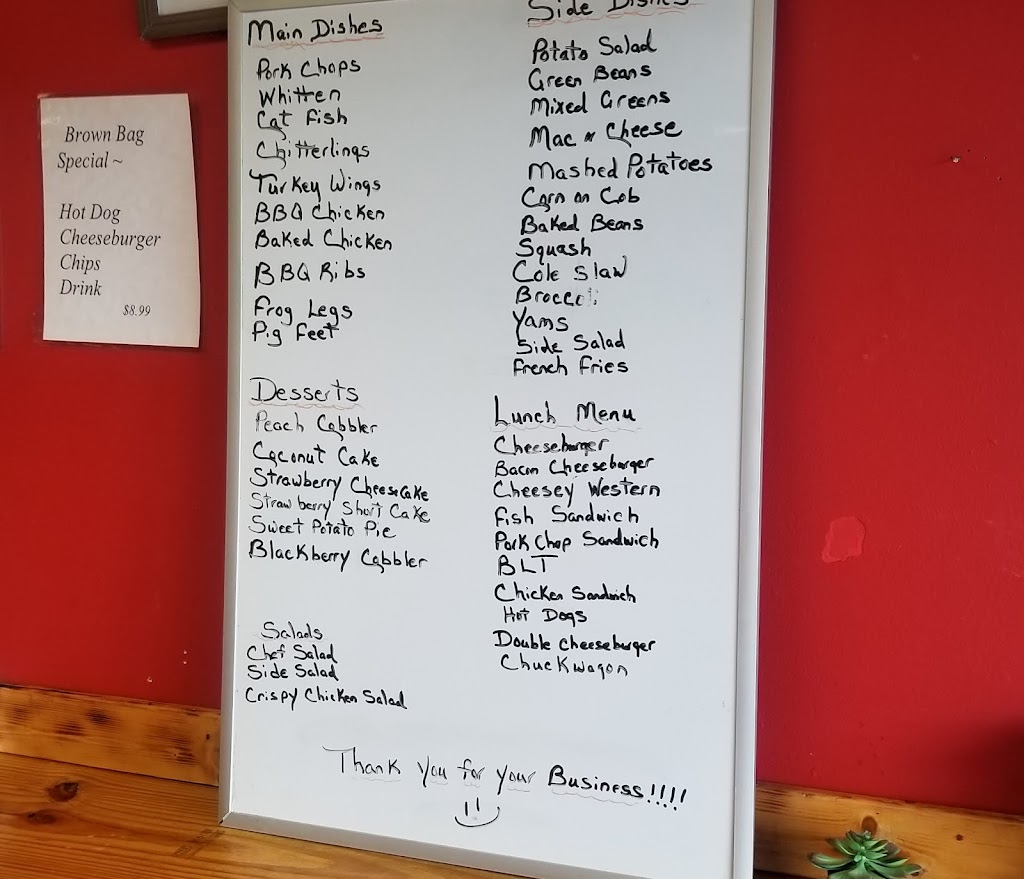 Brown Bag
Special ~
Hot Dog
Cheeseburger
Chips
Drink
$8.99
Main Dishes
Pork Chops
Whitten
Cat Fish
Chitterlings
Turkey Wings
BBQ Chicken
Baked Chicken
BBQ Ribs
Frog Legs
Pig Feet
Desserts
Peach Cobbler
Coconut Cake
Strawberry CheeseCake
Strawberry Short Cake
Sweet Potato Pie
Blackberry Cobbler
Salads
Chef Salad
Side Salad
Crispy Chicken Salad
Side Dishes
Potato Salad
Green Beans
Mixed Greens
Mac n Cheese
Mashed Potatoes
Corn on Cob
Baked Beans
Squash
Cole Slaw
Broccoli
Yams
Side Salad
French Fries
Lunch Menu
Cheeseburger
Bacon Cheeseburger
Cheesey Western
Fish Sandwich
Pork Chop Sandwich
BLT
Chicken Sandwich
Hot Dogs
Double Cheeseburger
Chuckwagon
Thank you for your Business!!!!